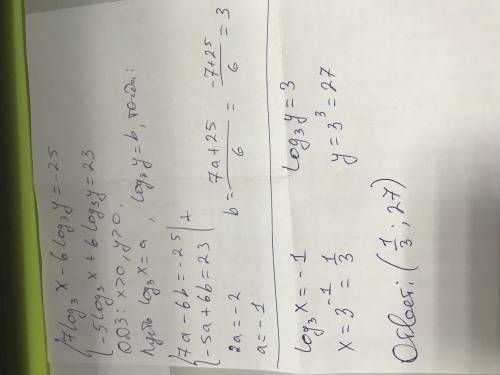 { 7log₃ x - 6log₃ y = -25
{ -5log₃ x + 6log₃ y = 23
ОДЗ: x>0, y>0.
Пусть log₃ x = a, log₃ y = b, тогда:
{ 7a - 6b = -25 | +
{ -5a + 6b = 23 |
2a = -2
a = -1
b = (7a+25)/6 = (-7+25)/6 = 3
log₃ x = -1
x = 3⁻¹ = 1/3
log₃ y = 3
y = 3³ = 27
Ответ: (1/3; 27)